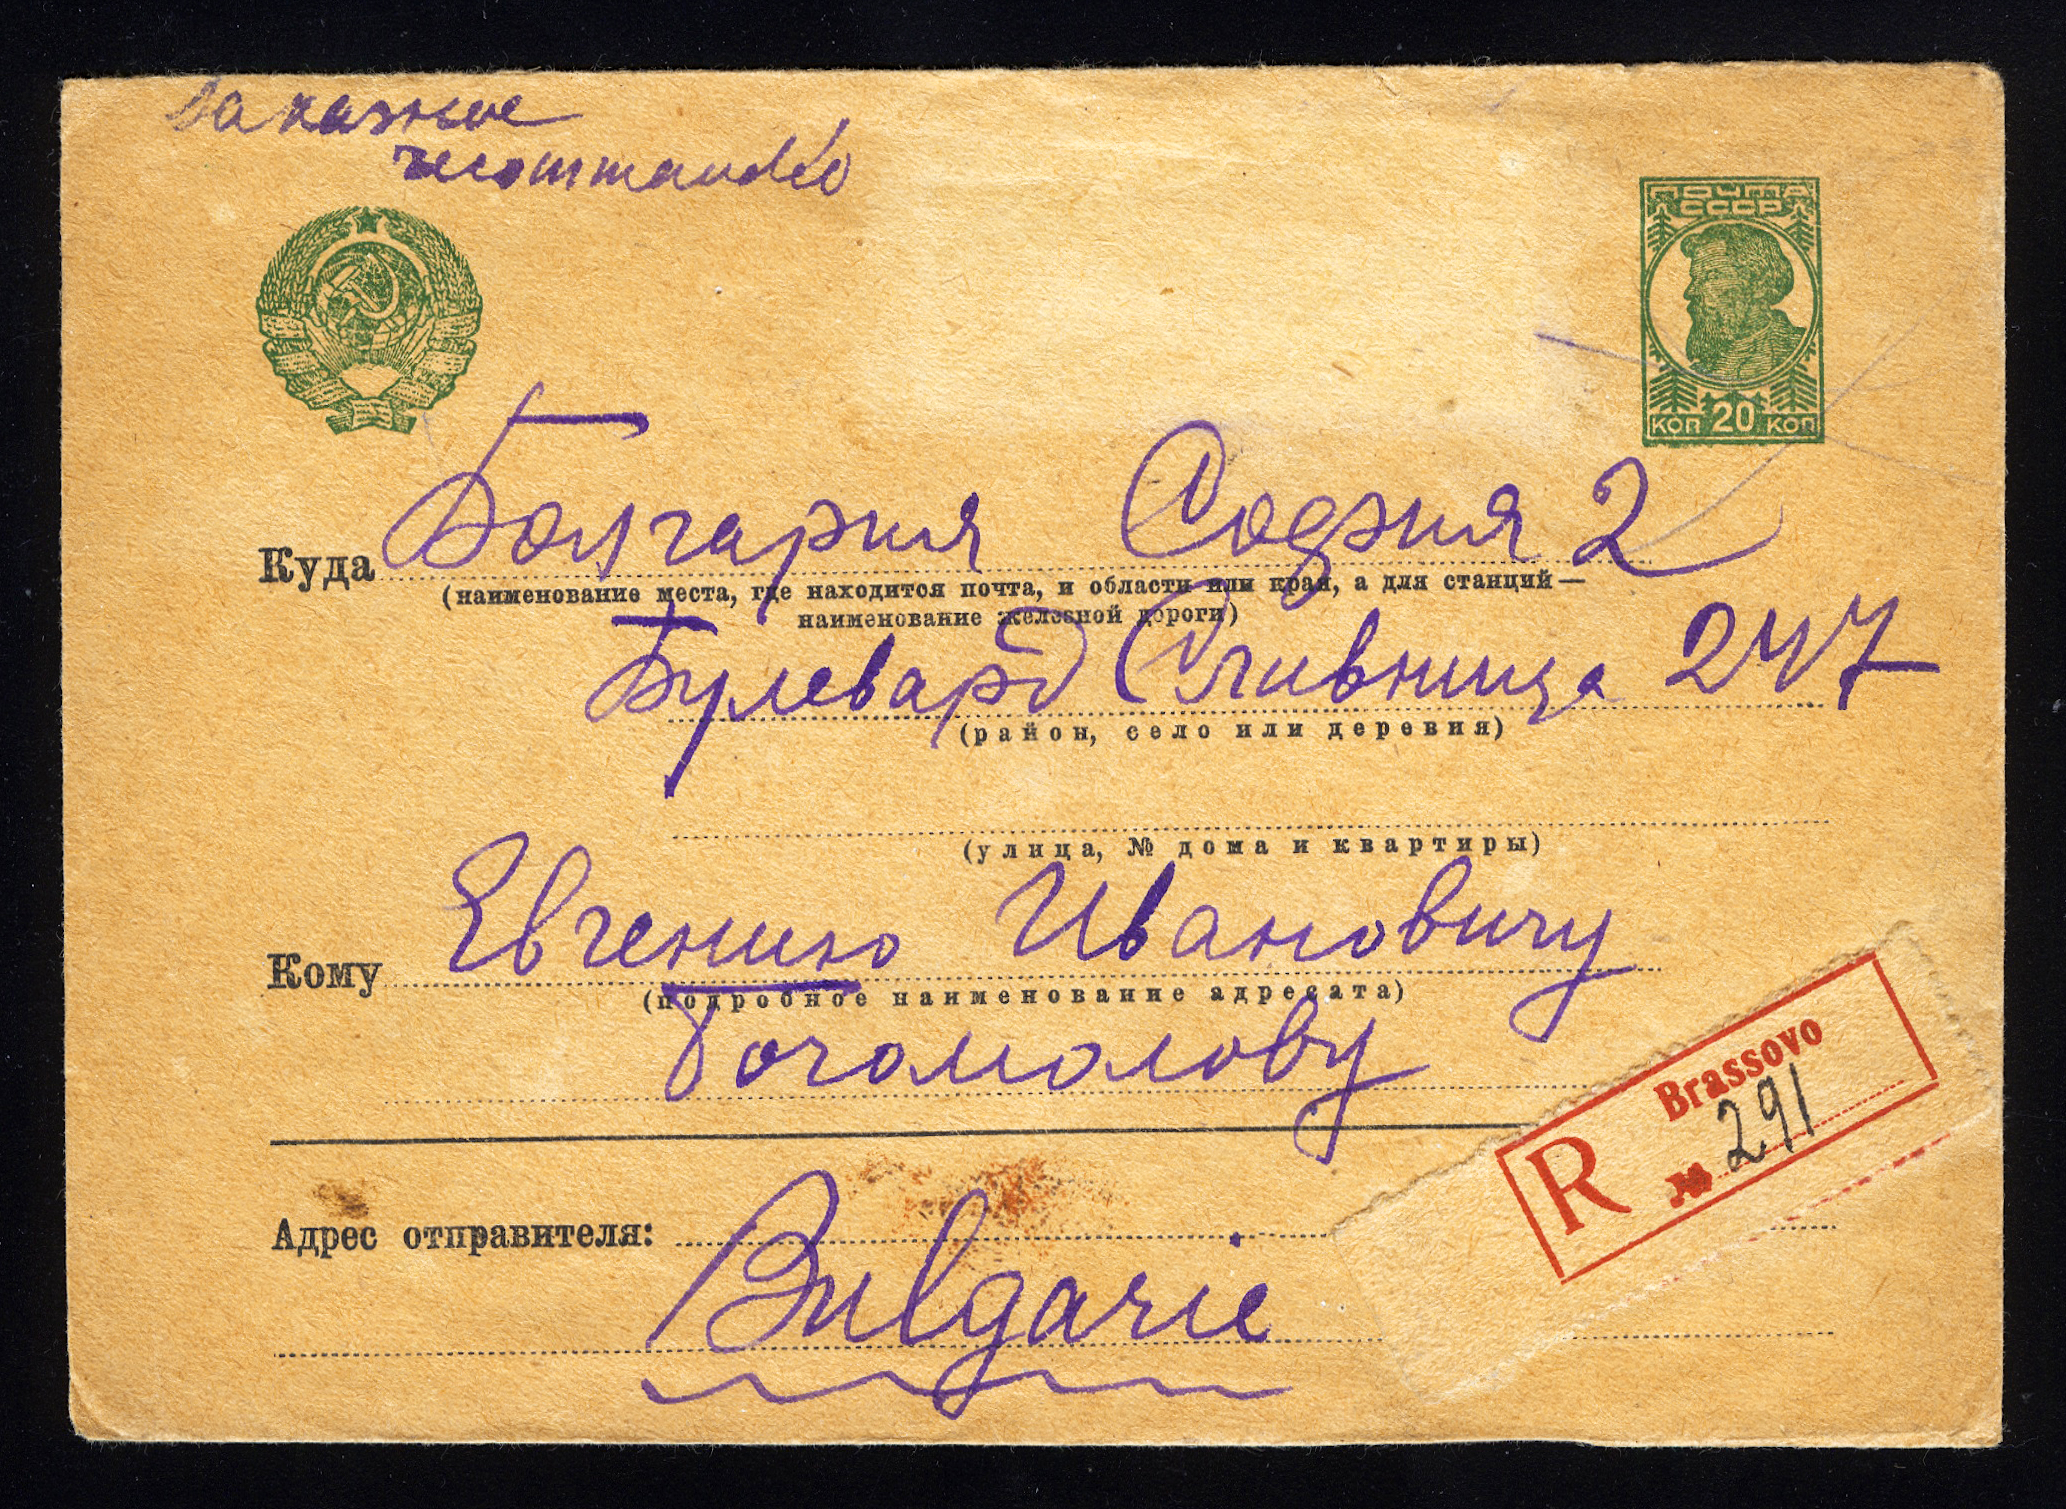 Заказное
recommandée
ПОЧТА
СССР
КОП 20 КОП
Болгария София 2
Куда
(наименование места, где находится почта, и области или края, а для станций—
наименование железной дороги)
Булевард Сливница 247
(район, село или деревня)
(улица, № дома и квартиры)
Евгению Ивановичу
Кому
(подробное наименование адресата)
Богомолову
Brassovo
R № 291
Адрес отправителя:
Bulgarie